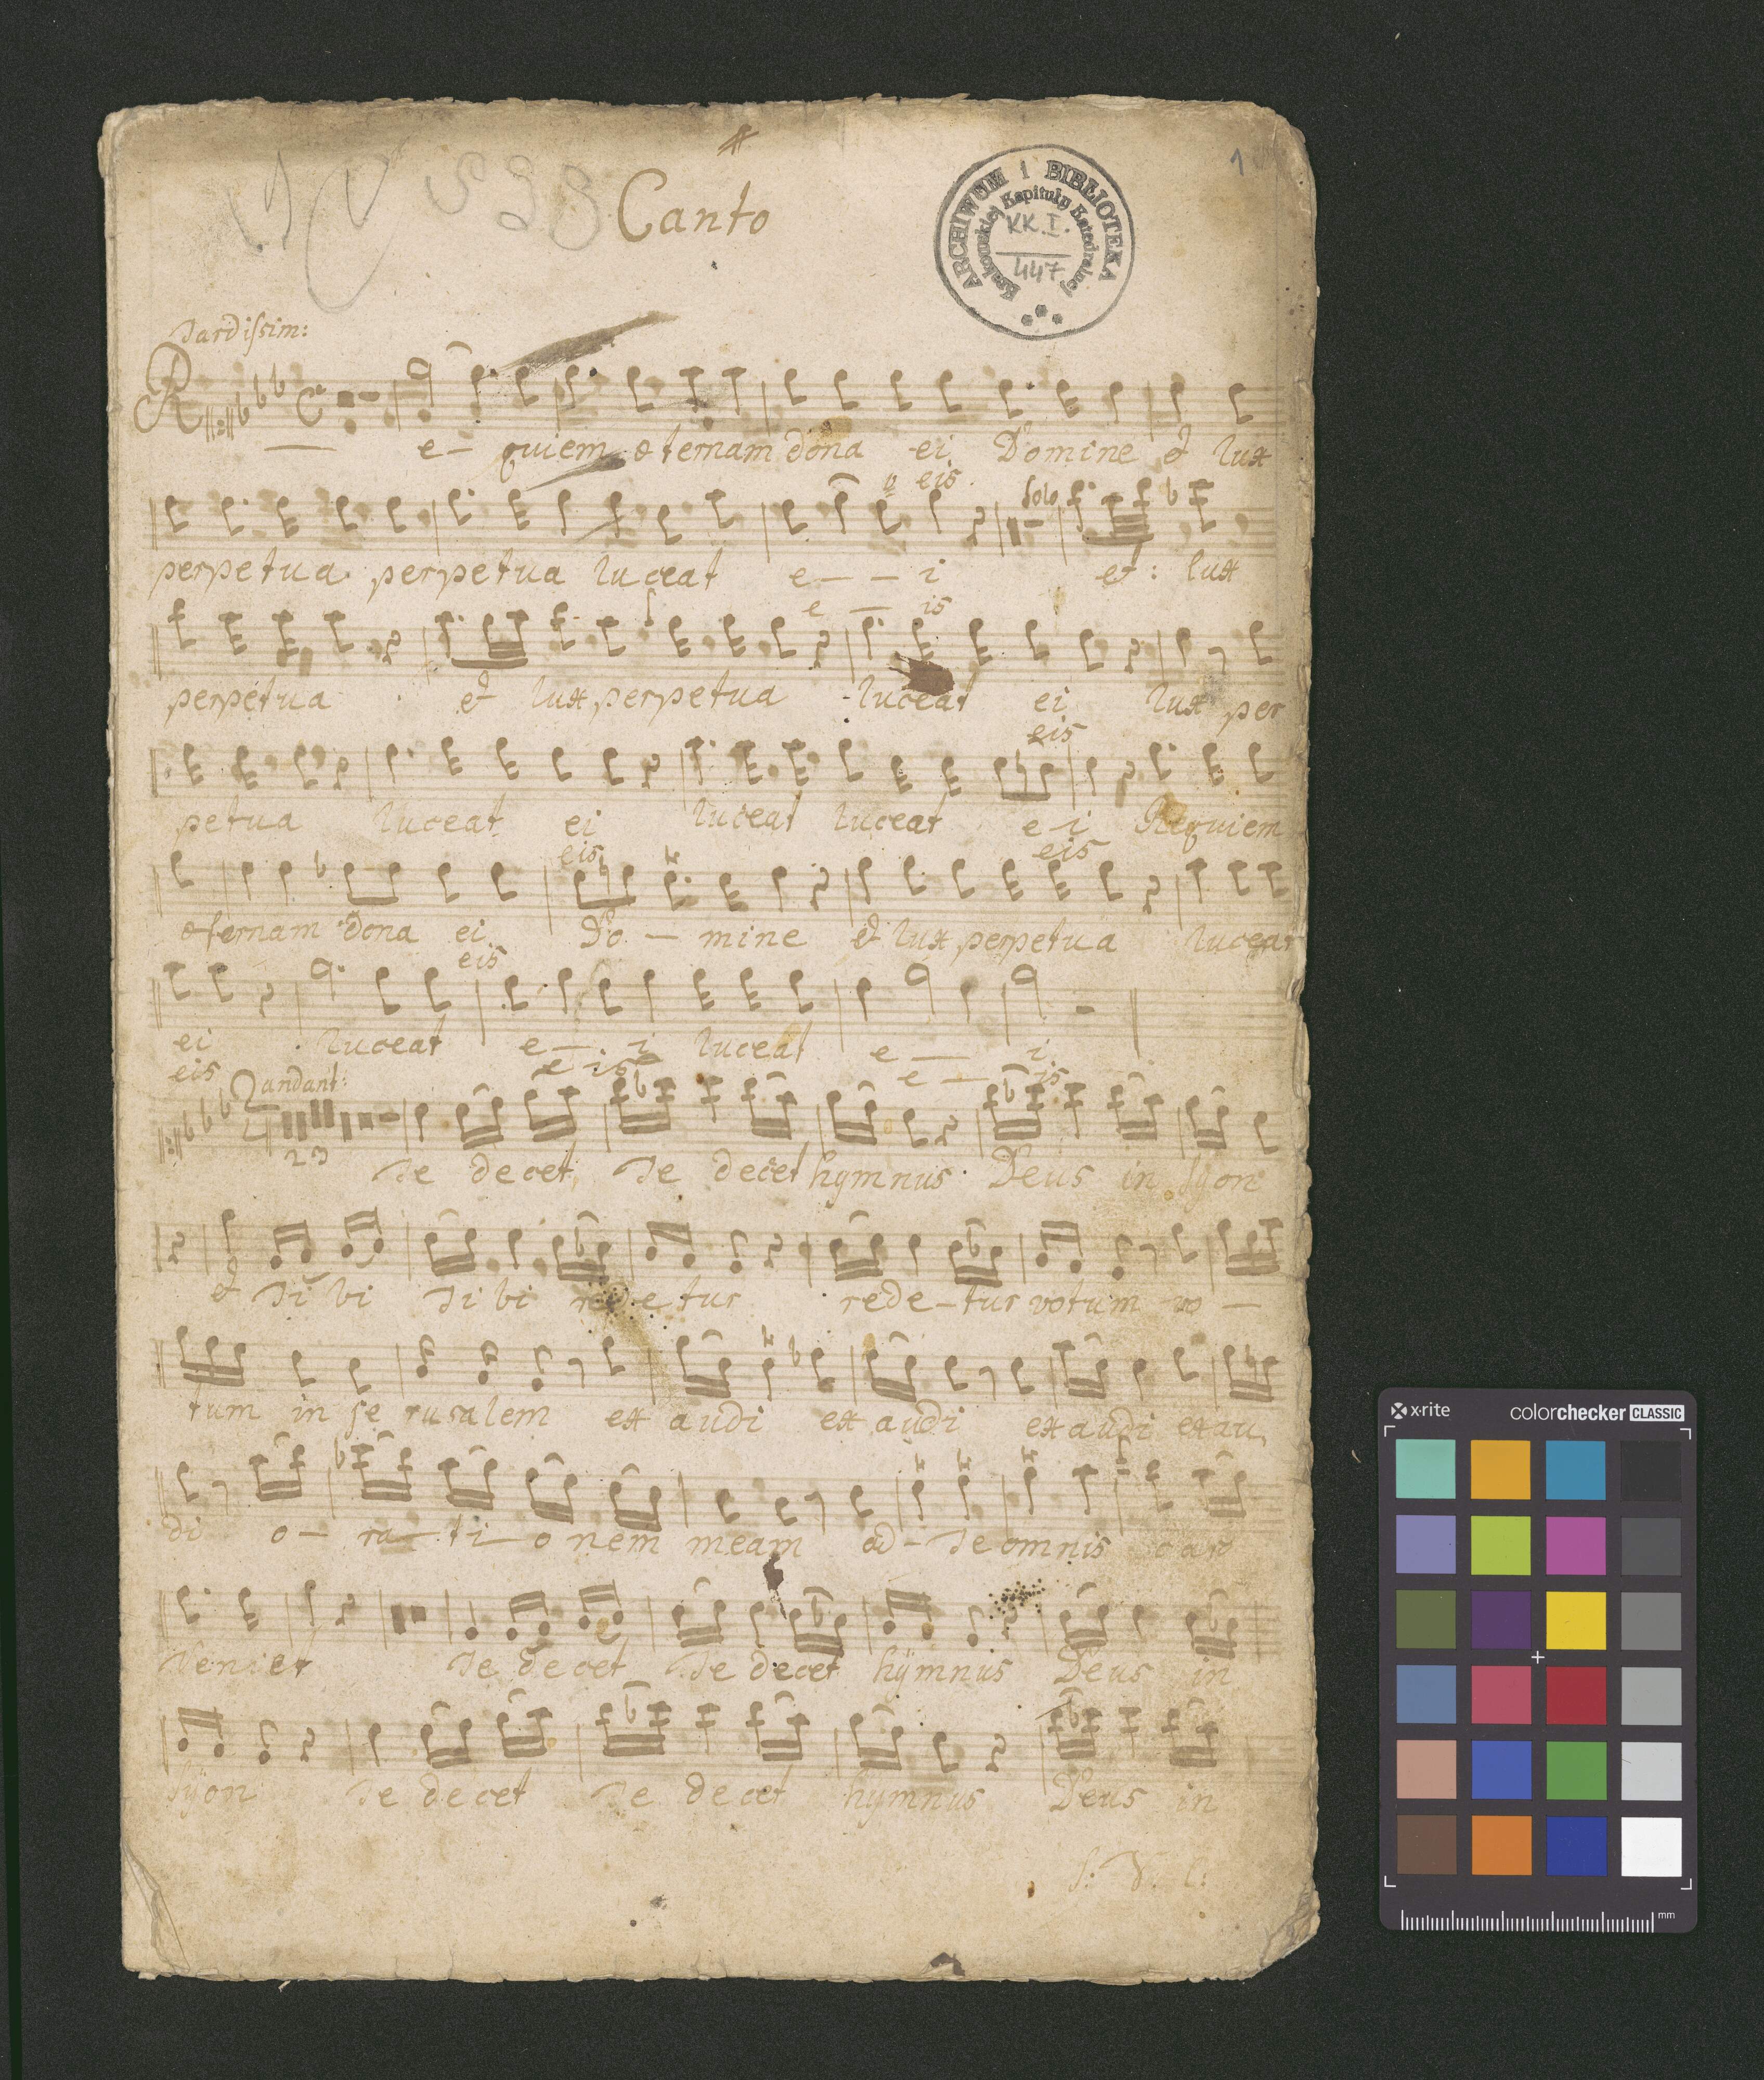 1
Canto
ARCHIWUM I BIBLIOTEKA
Krakowskiej Kapituły Katedralnej
KK. I.
447
Tardissim:
R e - quiem æternam dona ei Domine et lux
eis.
solo
perpetua perpetua luceat e - - i et: lux
e - is
perpetua et lux perpetua luceat ei lux per
eis
petua luceat ei luceat luceat e i Requiem
eis eis
æternam dona ei Do - mine et lux perpetua luceat
eis
ei luceat e - i luceat e - i
eis e is e - is
andant:
23
Te decet Te decet hymnus Deus in syon
et Tibi Tibi redetur rede-tur votum vo -
tum in Je rusalem exaudi exaudi exaudi exau
di o - ra - ti - onem meam ad - Te omnis caro
Veniet Te decet Te decet hÿmnus Deus in
sÿon Te decet Te decet hymnus Deus in
x·rite colorchecker CLASSIC
mm